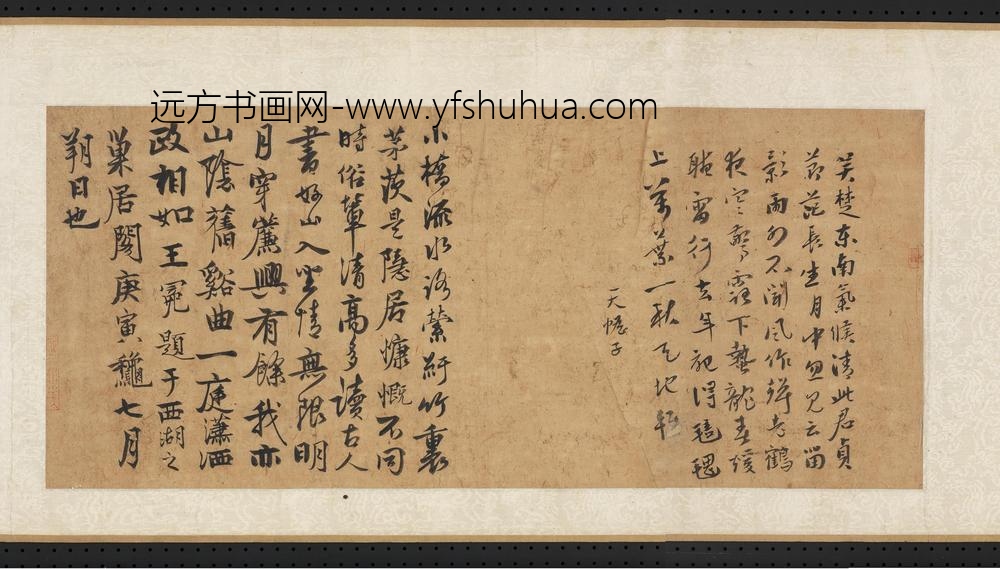 远方书画网-www.yfshuhua.com
吴楚东南氣候清此君貞
節茈長生月中忽見云留
影雨外不聞風作聲老鶴
夜寒驚露下蟄龍春煖
聽雷行去年記得
上萬葉一秋天地
一天
小橋流水路縈紆竹裏
茅茨是隱居慷慨不同
時俗輩清高多讀古人
書好山入坐情無限明
月穿簾興有餘我亦
山陰舊谿曲一庭瀟洒
政相如王冕題于西湖之
巢居閣庚寅龝七月
朔日也